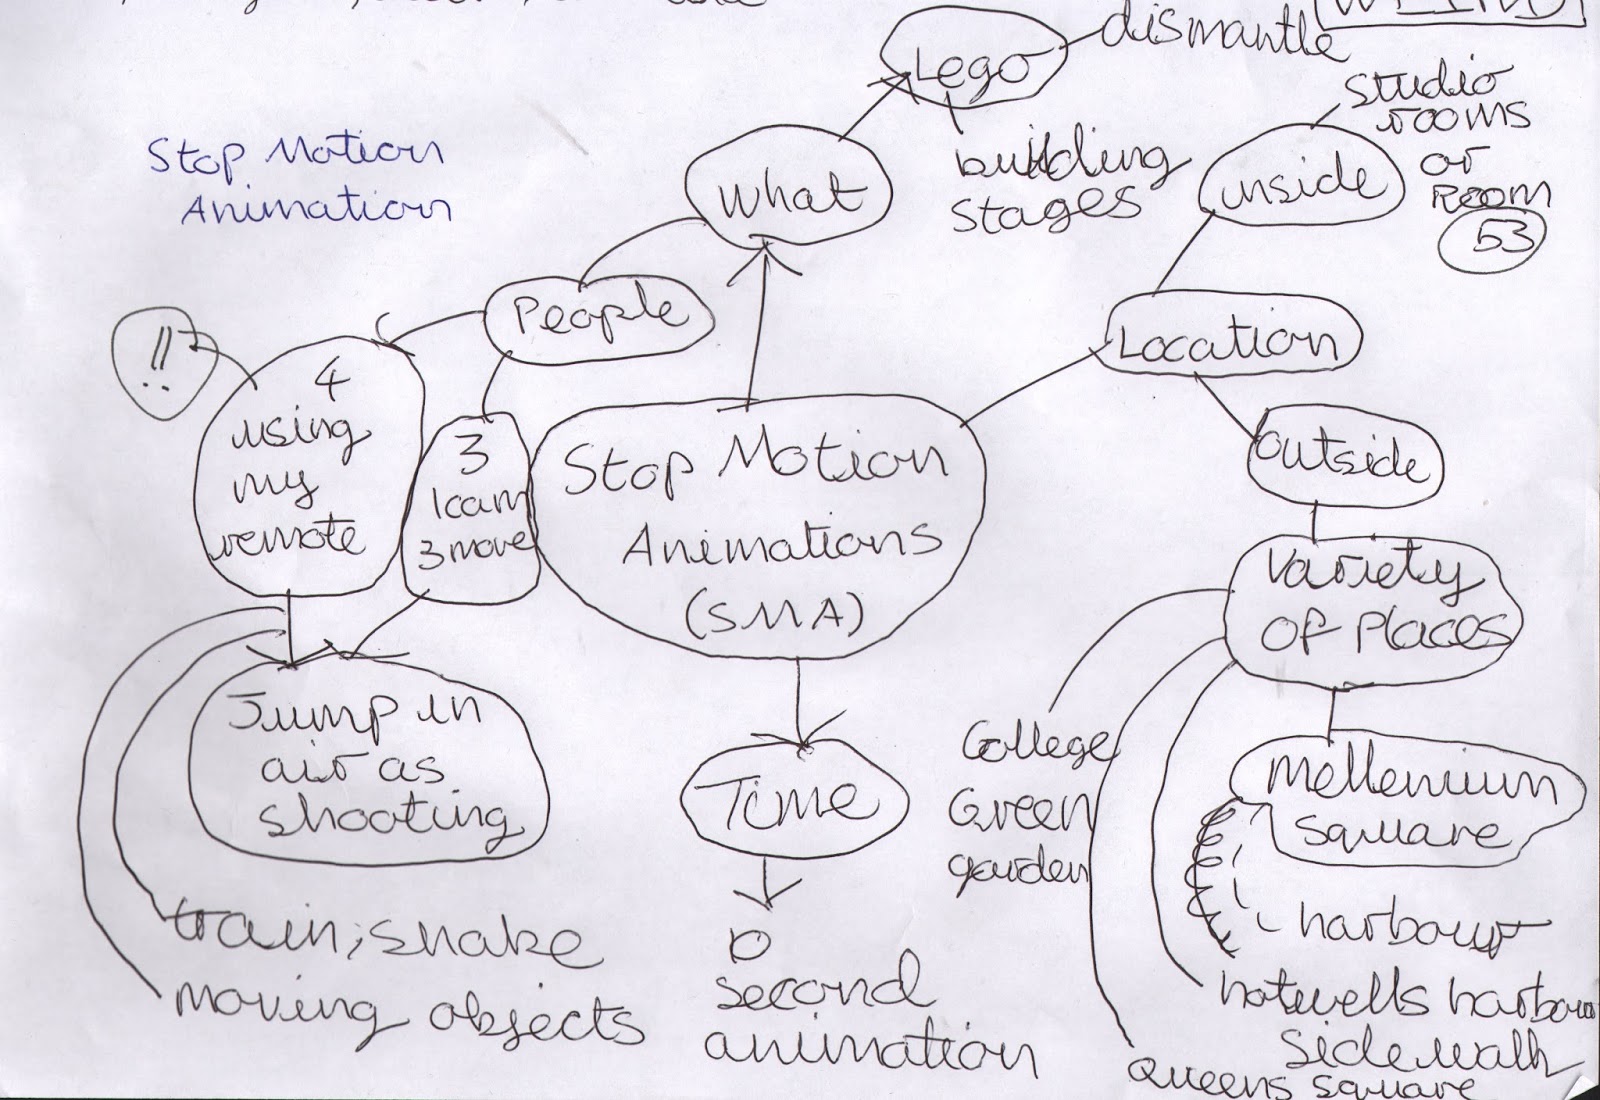 dismantle
Lego
building
stages
Stop Motion
Animation
What
studio
rooms
or
Room
53
inside
People
Location
!!
4
using
my
remote
3
1cam
3move
Stop Motion
Animations
(SMA)
outside
Variety
Of Places
Jump in
air as
shooting
Time
College
Green
garden
Mellenium
square
train, snake
moving objects
second
animation
harbour
hotwells harbour
sidewalk
Queens square